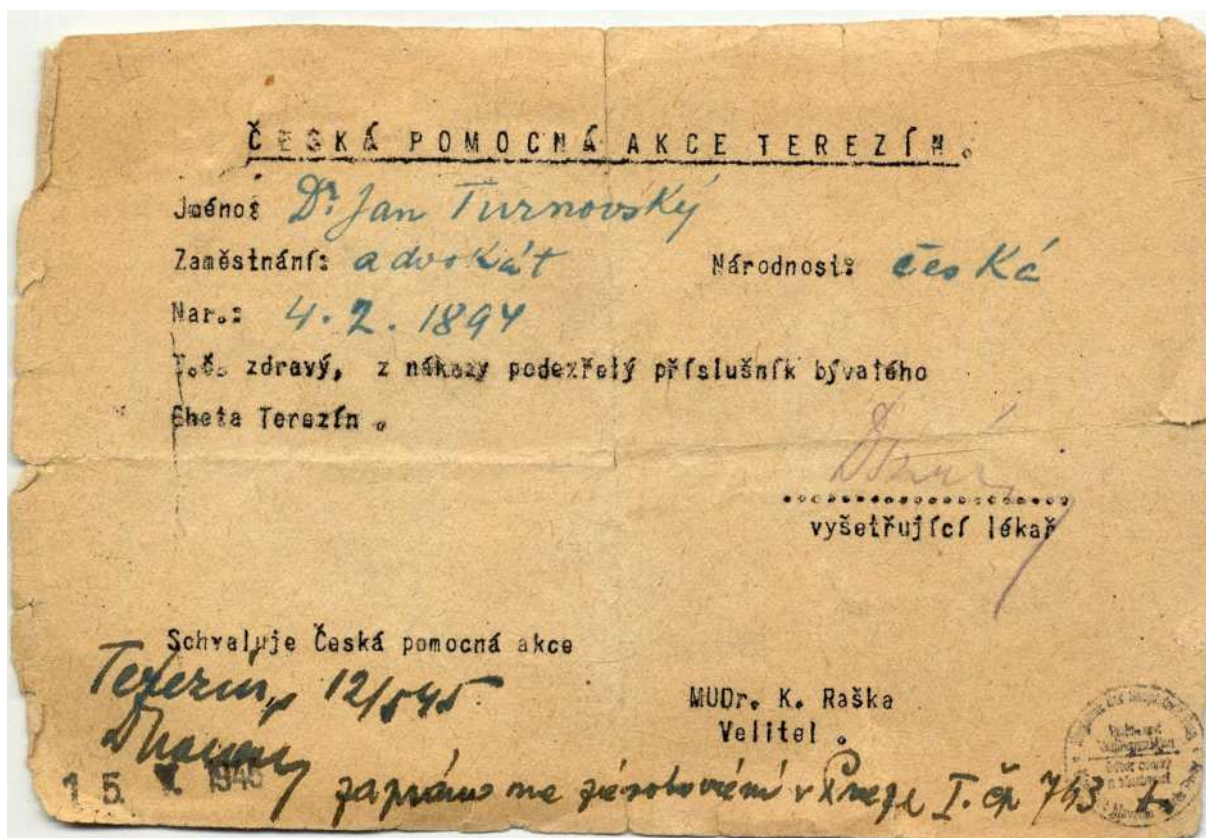 ČESKÁ POMOCNÁ AKCE TEREZÍN.
Jméno: Dr Jan Turnovský
Zaměstnání: advokát Národnost: česká
Nar.: 4.2.1894
T.č. zdravý, z nákazy podezřelý příslušník bývalého
Gheta Terezín.
vyšetřující lékař
Schvaluje Česká pomocná akce
Terezín, 12/5 45
MUDr. K. Raška
Velitel.
15. 1945
zapsáno na zásobování v Praze I. čp 743